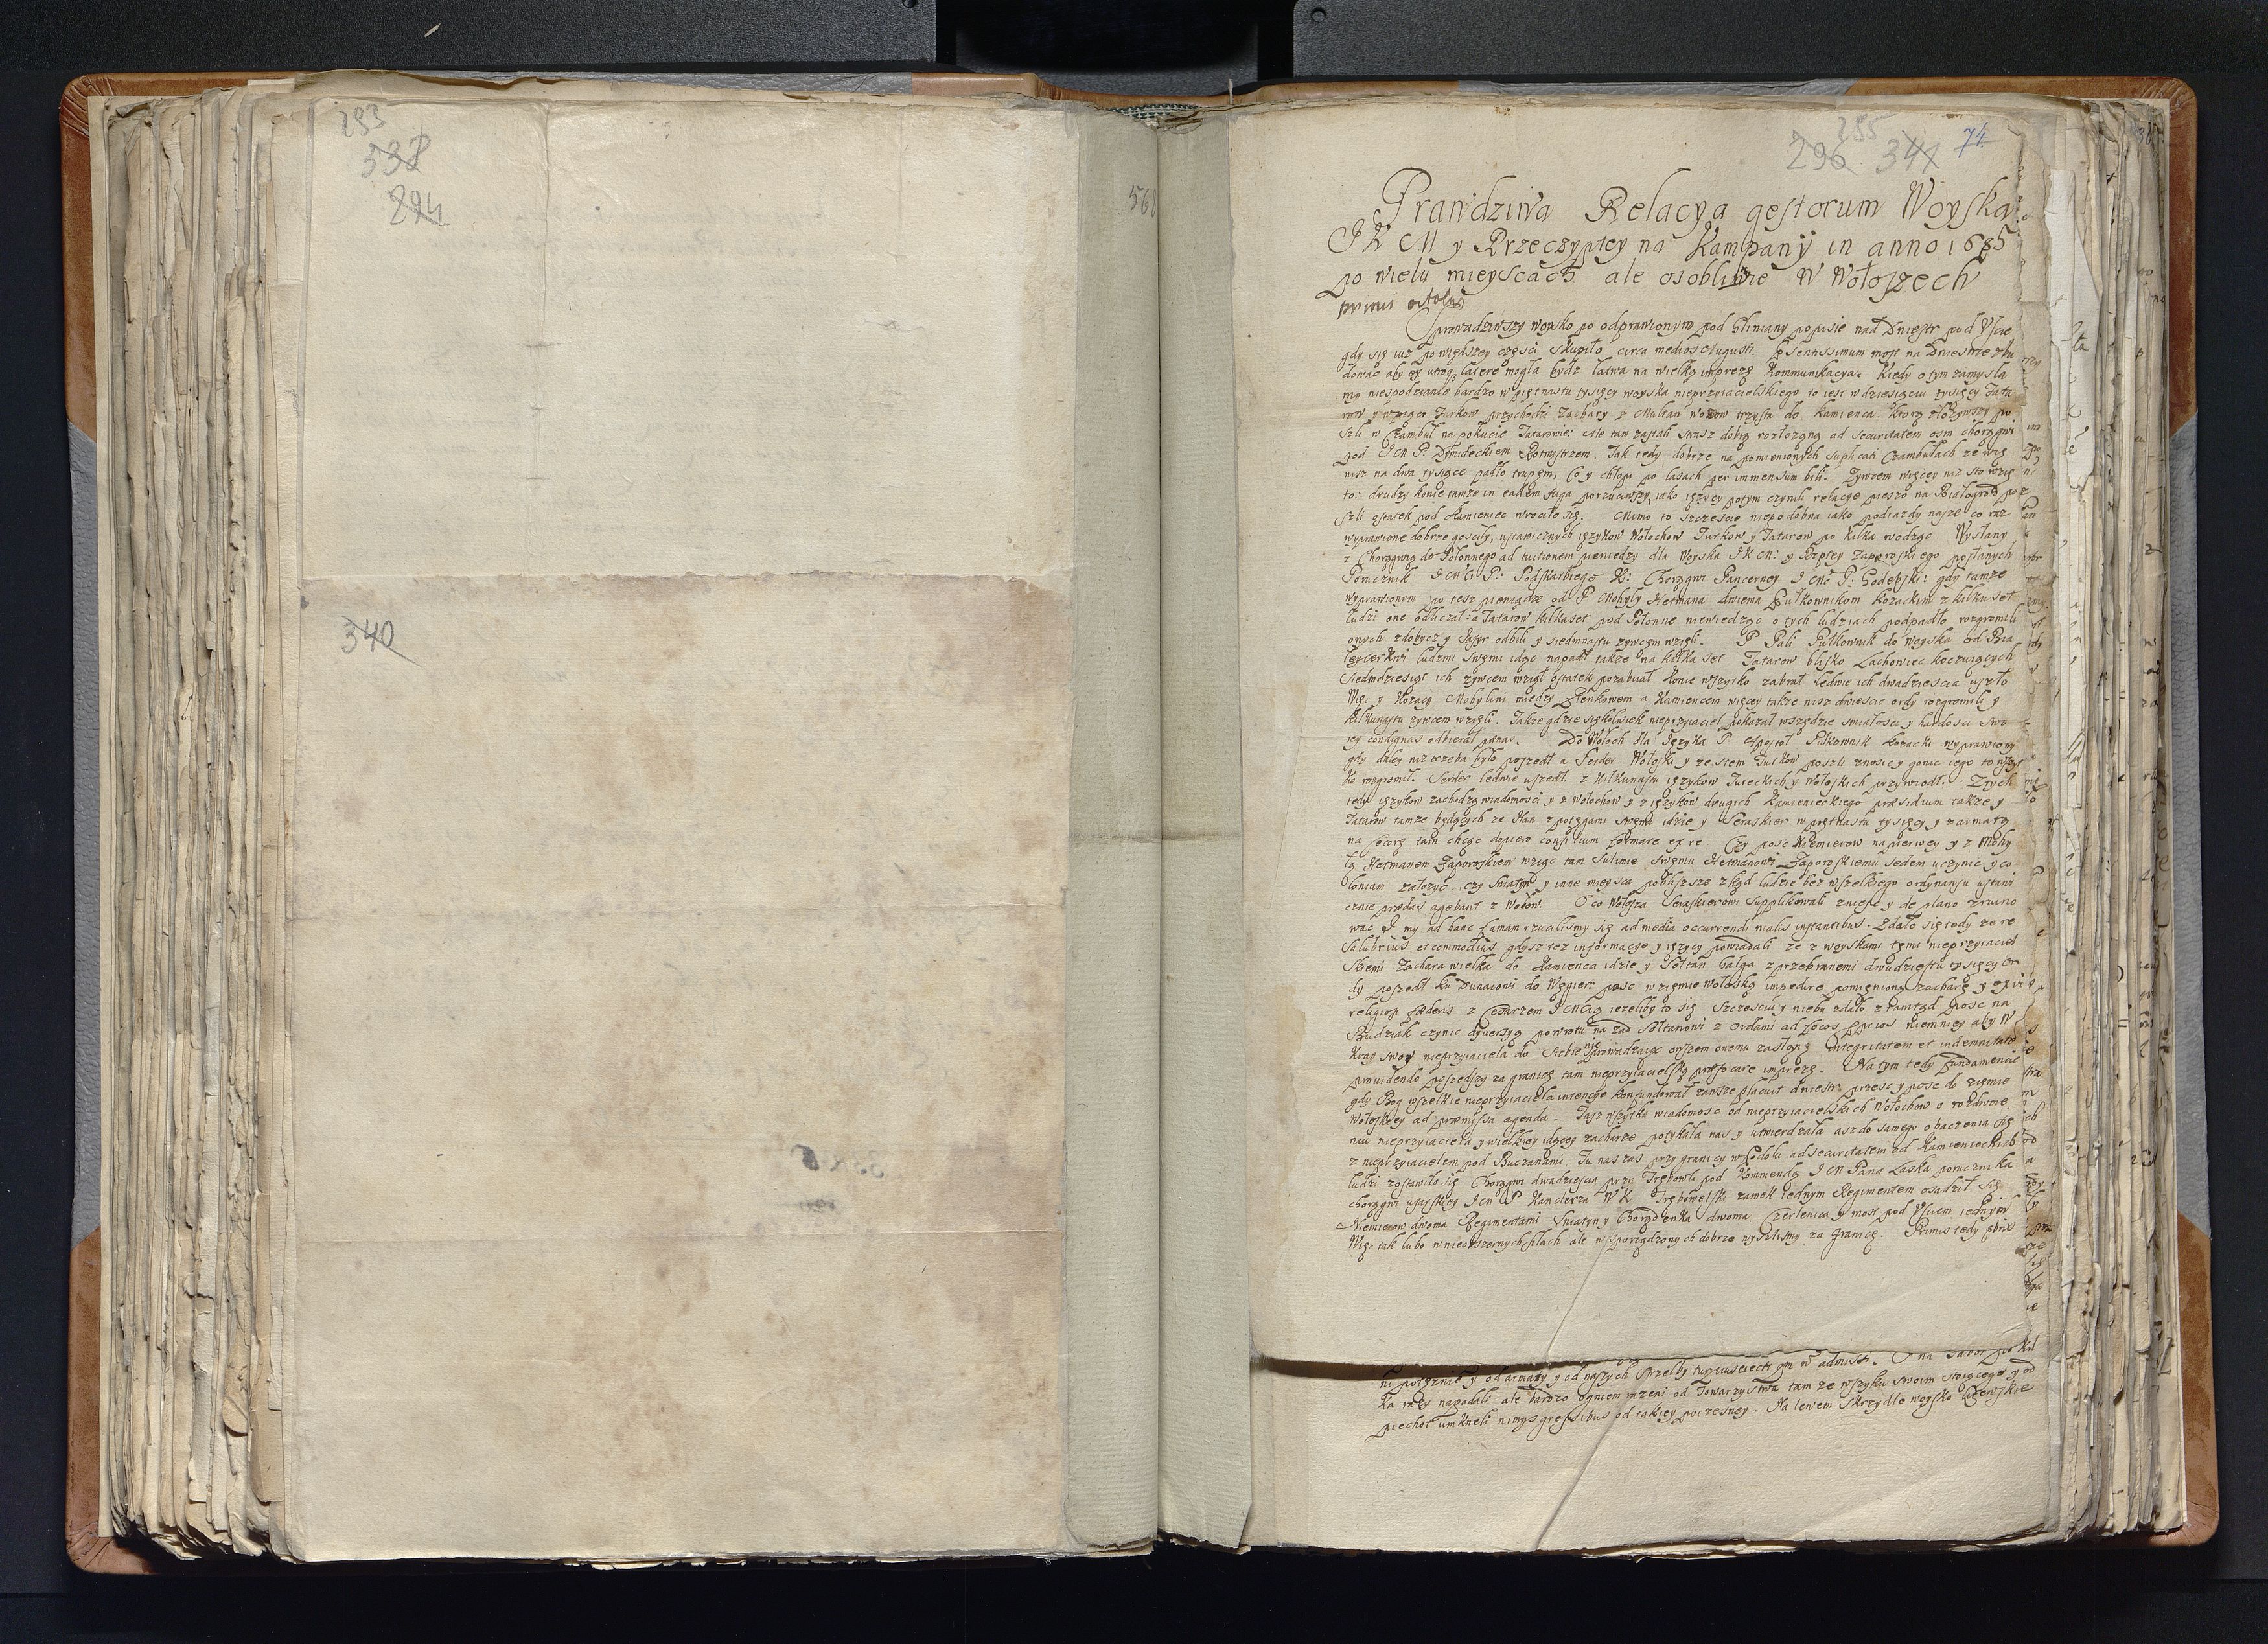 293
538
294
340
568
295
296 341 74
Prawdziwa Relacya gestorum Woyska
J K M y Rzeczyptey na Kampanÿ in anno 1685
po wielu mieyscach ale osobliwie W Wołoszech
primis octobris
Sprowadziwszy woysko po odprawionym pod Gliniany popisie nad Dniestr pod Uscie
gdy się iuz po większey częsci skupiło circa medios Augusti. most na Dniestrze zbu
dowac aby ex utroq latere mogła bydz łatwa na wielką imprezę Kommunikacya. Kiedy o tym zamysla
my niespodzianie bardzo w piętnastu tysięcy woyska nieprzyiacielskiego to iest w dziesiąciu tysięcy Tata
row y Turkow przychodzi Zachary z Multan wozow trzysta do Kamienca. ktorą złozywszy po
szli w Czambuł na pokucie Tatarowie: Ale tam zastali straz dobrą rozłozoną ad securitatem osm chorągwi
pod J M P. Dymideckiem Rotmistrzem. Tak tedy dobrze na pomienionych Czambułach ze wię
nisz na dwa tysiące padło trupem, Co y chłopi po lasach per immensum bili. Zywcem więcey niz sto wzię
to: drudzy konie tamze in eadem fuga porzuciwszy, iako ięzycy potym czynili relacye pieszo na Białogrod po
szli ostatek pod Kamieniec wrociło się. Mimo to szczescie niepodobna iako podiazdy nasze co raz
wyprawione dobrze gosciły, ustawicznych ięzykow Wołochow Turkow y Tatarow po kilka wodząc Wysłany
z Chorągwią do Połonnego ad tuitionem pieniędzy dla Woyska J K M: y Rzptey Zaporoskiego posłanych
Porucznik J M P: Podskarbiego K: Chorągwi Pancerney J M P: Godębski: gdy tamze
wyprawionym po tesz pieniądze od P Mohyly Hetmana dwiema Pułkownikom Kozackim z kilku set
ludzi one oddaczał: a Tatarow kilkaset pod Połonne niewiedząc o tych ludziach podpadło rozgromili
onych zdobycz y Jasyr odbili y siedmnastu zywcem wzięli. P Pali Pułkownik do Woyska od Bia
łeycerkwi ludzmi swemi idąc napadł takze na kilka set Tatarow blisko Lachowiec koczuiących
Siedmdziesiąt ich zywcem wziął ostatek pozabiiał Konie wszytko zabrał ledwie ich dwadziescia uszło
Więc y Kozacy Mohylini miedzy Zienkowem a Kamiencem więcey takze nisz dwiescie ordy rozgromili y
kilkunastu zywcem wzięli. Takze gdzie siękolwiek nieprzyiaciel pokazał wszędzie smiałosci y hardosci swo
iey condignas odbierał pænas. Do Wołoch dla Języka P Apostoł Pułkownik Kozacki wyprawiony
gdy daley niz trzeba było poszedł a Serder Wołoski y ze stem Turkow poszli znosic y gonic iego to wszyt
ko rozgromił. Serder ledwie uszedł. z kilkunastu ięzykow Tureckich y Wołoskich przywiodł. Z tych
tedy ięzykow zachodzą wiadomosci y z Wołochow y z ięzykow drugich Kamienieckiego præsidium takze y
Tatarow tamze będących ze Han z potęgami swemi idzie y Seraskier w piętnastu tysięcy y z armatą
na Cecorę tam chcąc dopiero consilium formare ex re Czy posc Niemierow napierwey y z Mohy
łą Hetmanem Zaporoskiem wziąc tam Sulimie swemu Hetmanowi Zaporoskiemu sedem uczynic y co
loniam załozyc. czy Sniatyn y inne mieysca pobliszsze zkąd ludzie bez wszelkiego ordynansu ustawi
cznie prædas agebant z Wołow. O co Wołosza Seraskierowi Supplikowali zniesc y de plano zruino
wac I my ad hanc famam rzucilismy się ad media occurrendi malis instantibus. Zdało się tedy ze re
salubrius et commodius gdysz tez informacye y ięzycy powiadali ze z woyskami temi nieprzyiaciel
skiemi Zachara wielka do Kamienca idzie y Sołtan Gałga z przebranemi dwudziestu tysięcy Or
dy poszedł ku Dunaiowi do Węgier: posc w ziemie Wołoską impedire pomienioną zacharę y ex vi
religiosi fæderis z Cesarzem J M iezeliby to się szczesciu y niebu zdało z tamtąd posc na
Budziak czynic dywersyą powrotu na zad Sołtanowi z Ordami ad locos pprios niemniey aby W
Kray swoy nieprzyiaciela do siebie nie prowadząc owszem onemu zasłonę integritatem et indemnitatem
providendo poszedszy za granicę tam nieprzyiacielską præfocare imprezę. Na tym tedy fundamencie
gdy Bog wszelkie nieprzyiaciela intencye konfundował zawsze placuit dniestr przesc y posc do ziemie
Wołoskiey ad præmissa agenda. Tasz wszytka wiadomosc od nieprzyiacielskich Wołochow o
niu nieprzyiaciela y wielkiey idącey zacharze potykała nas y utwierdzała asz do samego obaczenia się
z nieprzyiacielem pod Buczanami. Tu nas zas przy granicy w Podolu ad securitatem od Kamienieckich
ludzi zostawiło się Chorągwi dwadziescia przy Trębowli pod Kommendą J M Pana Łaska porucznika
chorągwi usarskiey J M P Kanclerza W K Trębowelski zamek iednym Regimentem osadził się
Niemierow dwoma Regimentami Sniatyn y Horodenka dwoma Czerlenica y most pod Usciem iednym
Więc tak lubo w nieobszernych siłach ale w sporządzonych dobrze wyszlismy za granicę. Primis tedy
ni potęznie y od armaty y od naszych strzelby
ka razy napadali ale bardzo ogniem razeni od Towarzystwa tam ze wszyku swoim stoiącego y od
piechot umkneli nimys gressibus od takiey poczesney. Na lewem skrzydle woysko Litewskie